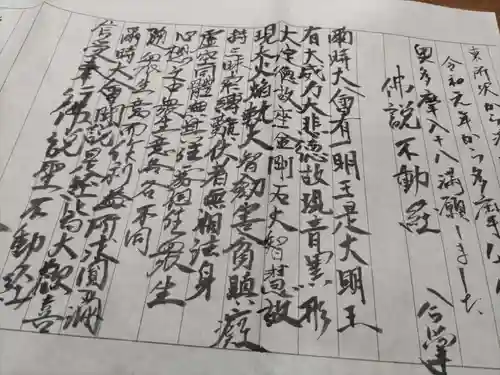 東所沢から
令和元年から多
奥多摩八十八満願しました
仏説不動経
合掌
爾時大会有一明王是大明王
有大威力大悲徳故現青黒形
大定徳故座金剛石大智慧故
現大火焔執大智剣害貪瞋癡
持三昧索縛難伏者無相法身
虚空同体無其住処但住衆生
心想之中衆生意想各不同
随衆生意而作利益所求円満
爾時大会聞説是経皆大歓喜
信受奉行
仏説聖不動経